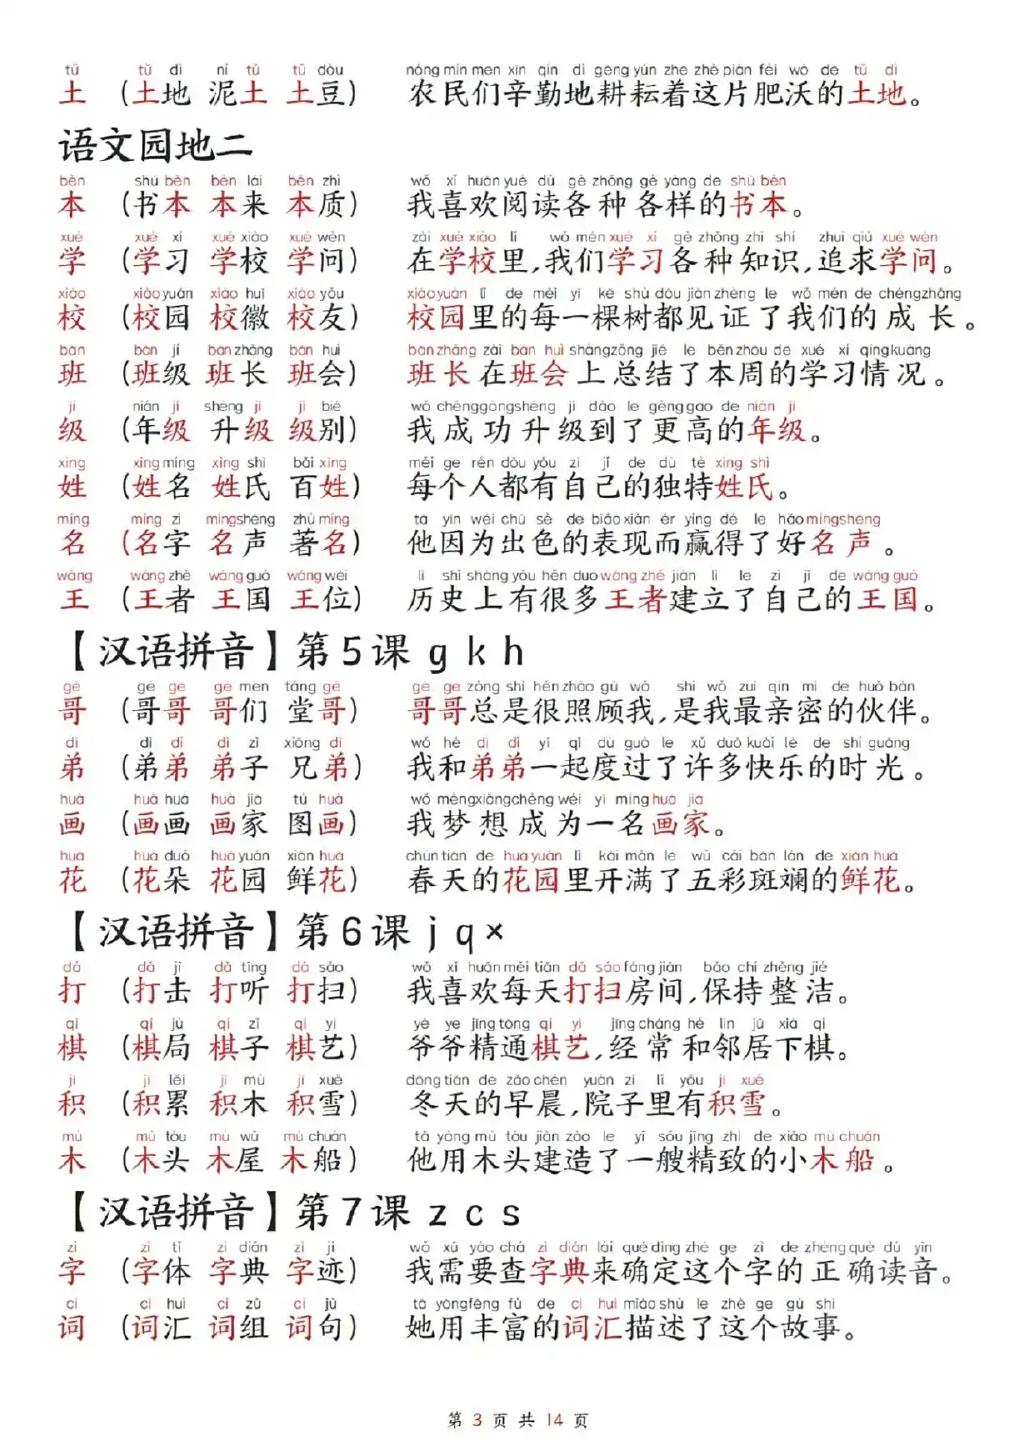 tǔ tǔ dì ní tǔ tǔ dòu nóng mín men xīn qín dì gēng yún zhe zhè piàn féi wò de tǔ dì
土 （土地 泥土 土豆） 农民们辛勤地耕耘着这片肥沃的土地。
语文园地二
běn shū běn běn lái běn zhì wǒ xǐ huān yuè dú gè zhǒng gè yàng de shū běn
本 （书本 本来 本质） 我喜欢阅读各种各样的书本。
xué xué xí xué xiào xué wèn zài xué xiào lǐ wǒ men xué xí gè zhǒng zhī shí zhuī qiú xué wèn
学 （学习 学校 学问） 在学校里，我们学习各种知识，追求学问。
xiào xiào yuán xiào huī xiào yǒu xiào yuán lǐ de měi yì kē shù dōu jiàn zhèng le wǒ men de chéng zhǎng
校 （校园 校徽 校友） 校园里的每一棵树都见证了我们的成长。
bān bān jí bān zhǎng bān huì bān zhǎng zài bān huì shàng zǒng jié le běn zhōu de xué xí qíng kuàng
班 （班级 班长 班会） 班长在班会上总结了本周的学习情况。
jí nián jí shēng jí jí bié wǒ chéng gōng shēng jí dào le gèng gāo de nián jí
级 （年级 升级 级别） 我成功升级到了更高的年级。
xìng xìng míng xìng shì bǎi xìng měi gè rén dōu yǒu zì jǐ de dú tè xìng shì
姓 （姓名 姓氏 百姓） 每个人都有自己的独特姓氏。
míng míng zì míng shēng zhù míng tā yīn wèi chū sè de biǎo xiàn ér yíng dé le hǎo míng shēng
名 （名字 名声 著名） 他因为出色的表现而赢得了好名声。
wáng wáng zhě wáng guó wáng wèi lì shǐ shàng yǒu hěn duō wáng zhě jiàn lì le zì jǐ de wáng guó
王 （王者 王国 王位） 历史上有很多王者建立了自己的王国。
【汉语拼音】第5课 g k h
gē gē ge gē men táng gē gē ge zǒng shì hěn zhào gù wǒ shì wǒ zuì qīn mì de huǒ bàn
哥 （哥哥 哥们 堂哥） 哥哥总是很照顾我，是我最亲密的伙伴。
dì dì di dì zǐ xiōng dì wǒ hé dì di yì qǐ dù guò le xǔ duō kuài lè de shí guāng
弟 （弟弟 弟子 兄弟） 我和弟弟一起度过了许多快乐的时光。
huà huà huà huà jiā tú huà wǒ mèng xiǎng chéng wéi yì míng huà jiā
画 （画画 画家 图画） 我梦想成为一名画家。
huā huā duǒ huā yuán xiān huā chūn tiān de huā yuán lǐ kāi mǎn le wǔ cǎi bān lán de xiān huā
花 （花朵 花园 鲜花） 春天的花园里开满了五彩斑斓的鲜花。
【汉语拼音】第6课 j q x
dǎ dǎ jī dǎ tīng dǎ sǎo wǒ xǐ huān měi tiān dǎ sǎo fáng jiān bǎo chí zhěng jié
打 （打击 打听 打扫） 我喜欢每天打扫房间，保持整洁。
qí qí jú qí zǐ qí yì yé ye jīng tōng qí yì jīng cháng hé lín jū xià qí
棋 （棋局 棋子 棋艺） 爷爷精通棋艺，经常和邻居下棋。
jī jī lěi jī mù jī xuě dōng tiān de zǎo chén yuàn zi lǐ yǒu jī xuě
积 （积累 积木 积雪） 冬天的早晨，院子里有积雪。
mù mù tóu mù wū mù chuán tā yòng mù tóu jiàn zào le yì sōu jīng zhì de xiǎo mù chuán
木 （木头 木屋 木船） 他用木头建造了一艘精致的小木船。
【汉语拼音】第7课 z c s
zì zì tǐ zì diǎn zì jì wǒ xū yào chá zì diǎn lái què dìng zhè ge zì de zhèng què dú yīn
字 （字体 字典 字迹） 我需要查字典来确定这个字的正确读音。
cí cí huì cí zǔ cí jù tā yòng fēng fù de cí huì miáo shù le zhè ge gù shì
词 （词汇 词组 词句） 她用丰富的词汇描述了这个故事。
第 3 页 共 14 页